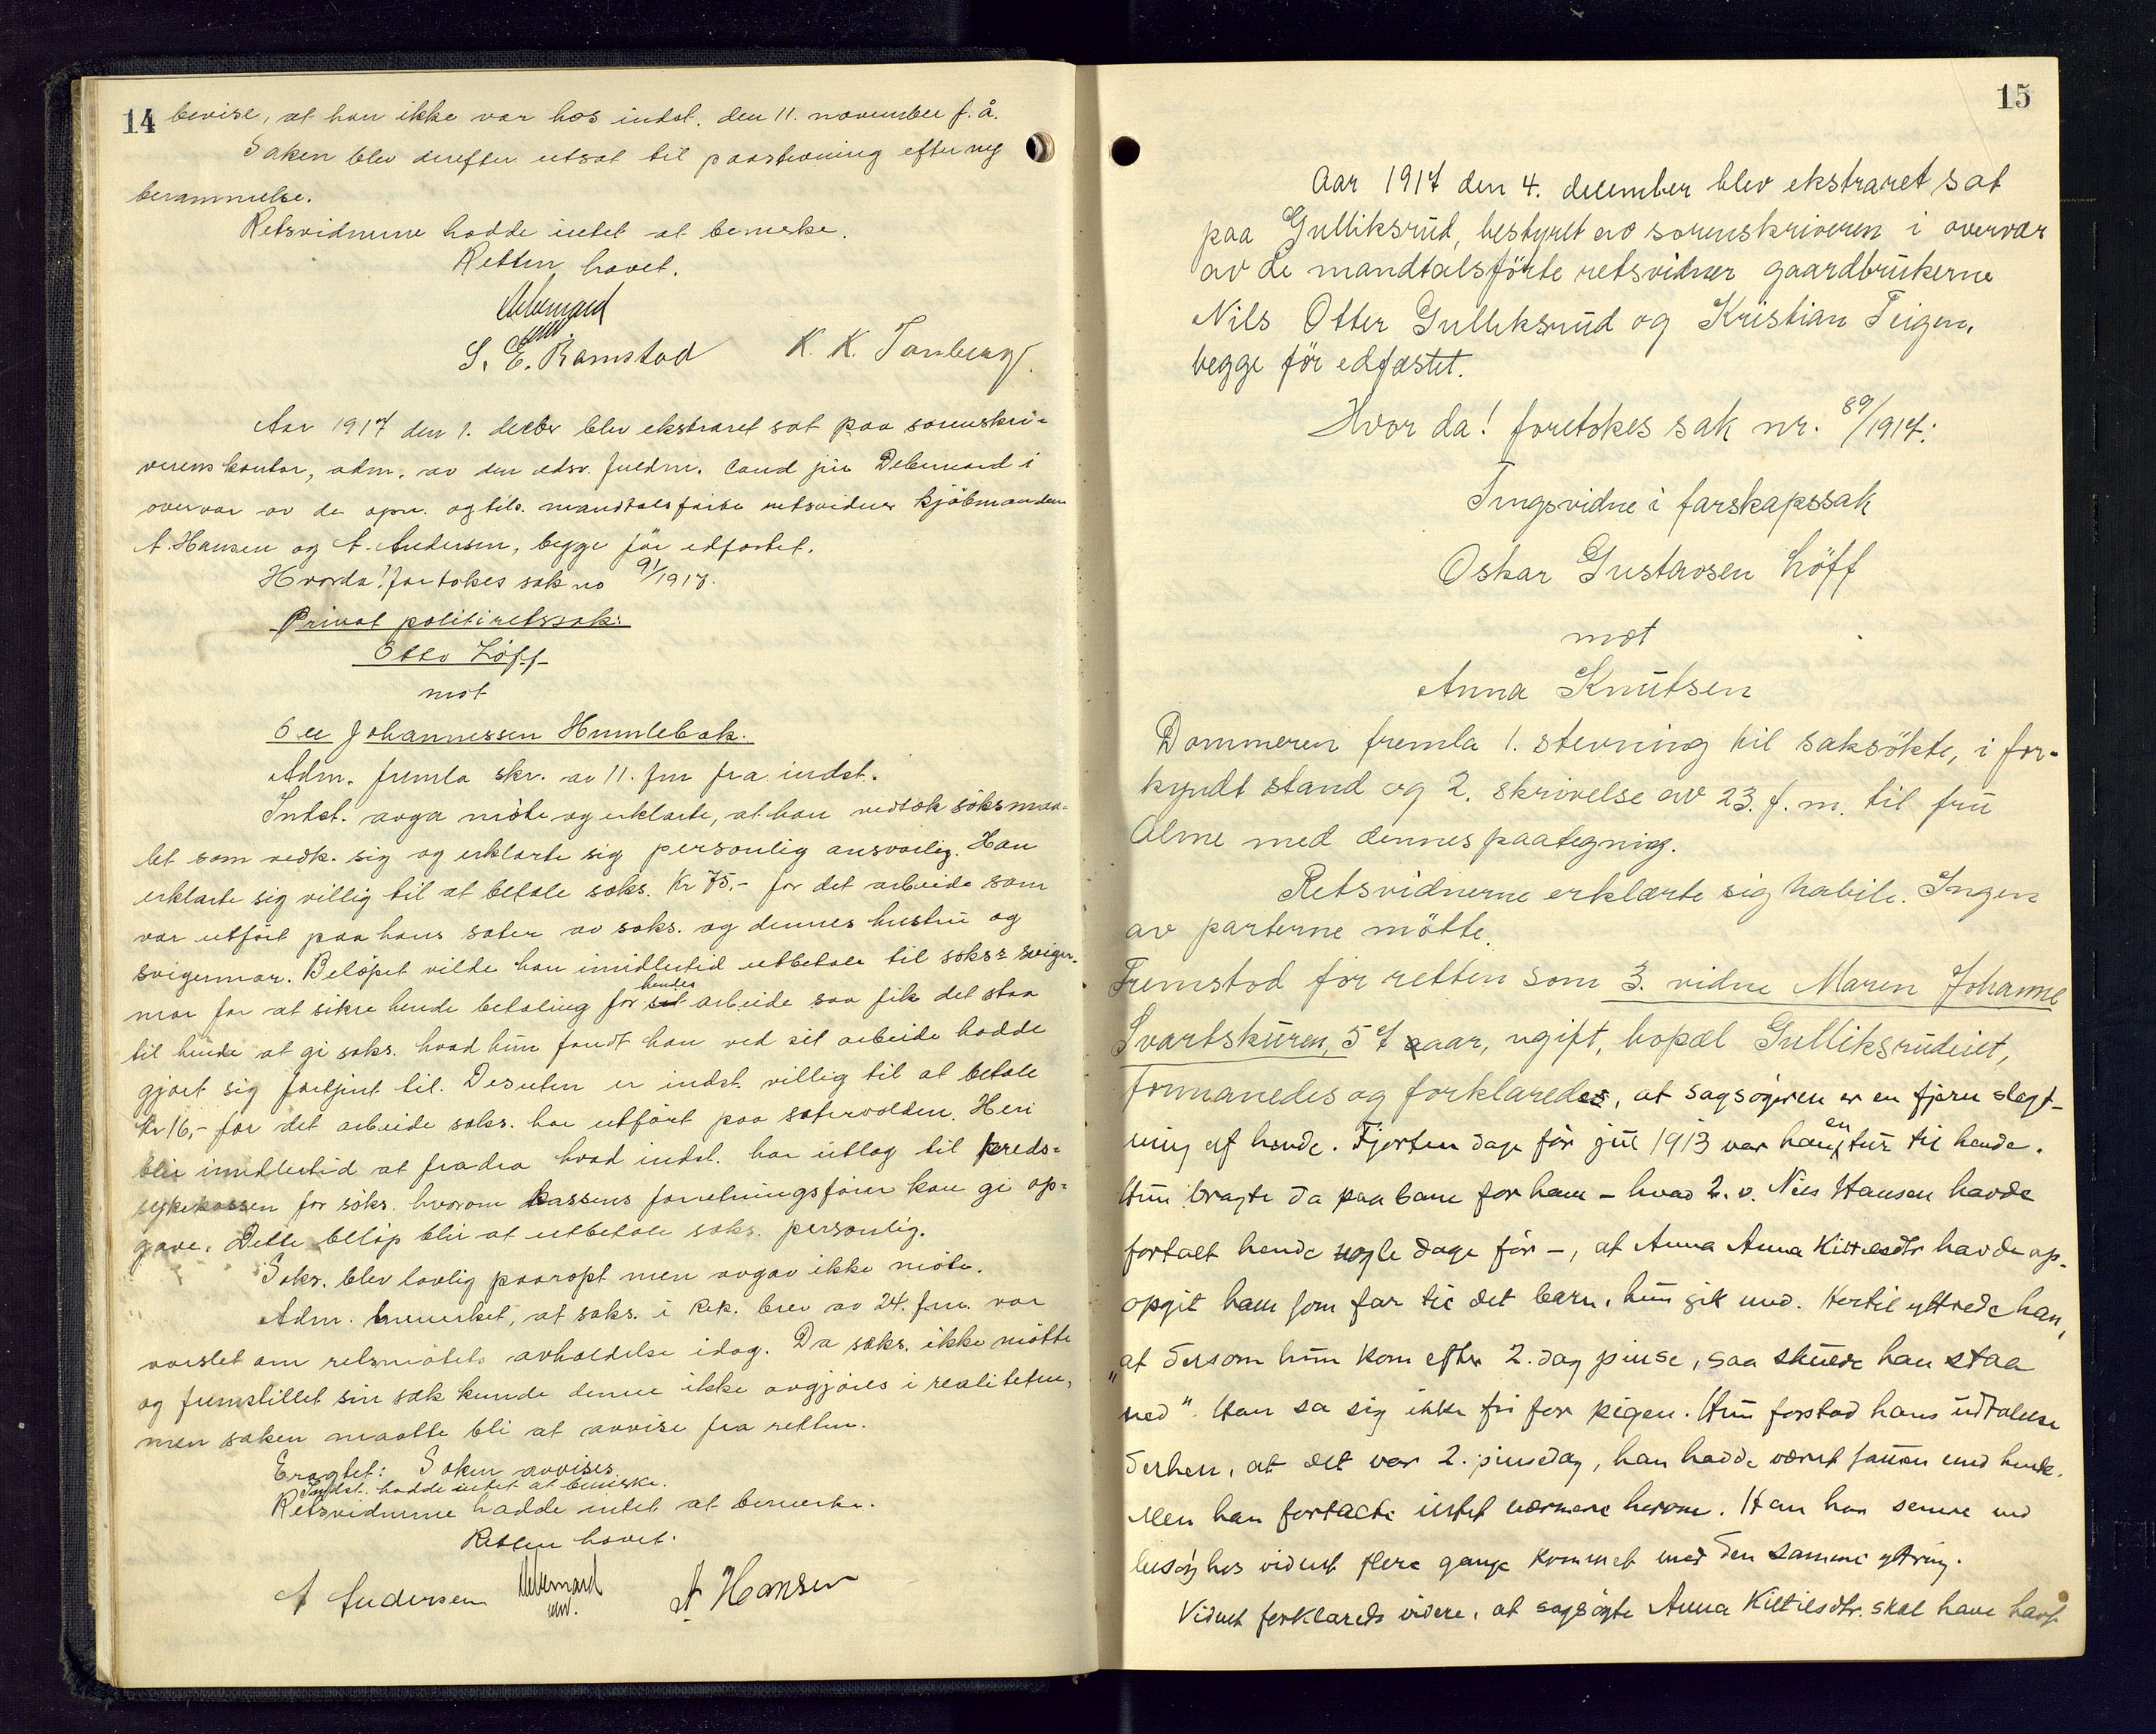 14
bevise, at han ikke var hos indst. den 11. november f. å.
Saken blev derefter utsat til paastevning efter ny
berammelse.
Retsvidnerne hadde intet at bemerke.
Retten hævet.
S. E. Ramstad K. K. Tanberg
Aar 1917 den 1. decbr blev ekstraret sat paa sorenskri-
verens kontor, adm. av den edsv. fuldm. cand jur Debernard i
overvær av de opn. og tils. mandtalsførte retsvidner kjöbmændene
A. Hansen og A. Andersen, begge för edfæstet.
Hvorda! foretokes sak no 91/1917.
Privat politiretssak:
Otto Löff
mot
Ole Johannessen Humlebæk.
Adm. fremla skr. av 11. f.m fra indst.
Indst. avga møte og erklærte, at han vedtok söksmaa-
let som vedk. sig og erklærte sig personlig ansvarlig. Han
erklærte sig villig til at betale saks. Kr 75,- for det arbeide som
var utfört paa hans sæter av saks. og dennes hustru og
svigermor. Belöpet vilde han imidlertid utbetale til saks's sviger-
mor for at sikre hende betaling for hendes arbeide saa fik det staa
til hende at gi saks. hvad hun fandt han ved sit arbeide hadde
gjort sig fortjent til. Desuten er indst. villig til at betale
Kr 16,- for det arbeide saks. har utfört paa sætervolden. Heri
blir imidlertid at fradra hvad indst. har utlagt til kreds-
sykekassen for saks. hvorom kassens forretningsförer kan gi op-
gave. Dette belöp blir at utbetale saks. personlig.
Saks. blev lovlig paaropt men avgav ikke möte.
Adm. bemerket, at saks. i rek. brev av 24. f.m. var
varslet om retsmötets avholdelse idag. Da saks. ikke mötte
og fremstillet sin sak kunde denne ikke avgjöres i realiteten,
men saken maatte bli at avvise fra retten.
Eragtet: Saken avvises
Indst. hadde intet at bemerke.
Retsvidnerne hadde intet at bemerke.
Retten hævet.
A Andersen A Hansen
15
Aar 1917 den 4. december blev ekstraret sat
paa Gulliksrud, bestyret av sorenskriveren i overvær
av de mandtalsförte retsvidner gaardbrukerne
Nils Otter Gulliksrud og Kristian Teigen,
begge för edfæstet.
Hvor da! foretokes sak nr. 89/1917:
Tingsvidne i farskapssak
Oskar Gustavsen Löff
mot
Anna Knutsen
Dommeren fremla 1. stevning til saksökte, i for-
kyndt stand og 2. skrivelse av 23. f. m. til fru
Alme med dennes paategning.
Retsvidnerne erklærte sig habile. Ingen
av parterne mötte.
Fremstod for retten som 3. vidne Maren Johanne
Svartskuren, 57 aar, ugift, bopæl Gulliksrudeiet,
formanedes og forklaredes, at sagsøgeren er en fjern slegt-
ning af hende. Fjorten dage før jul 1913 var han en tur til hende.
Hun bragte da paa bane for ham – hvad 2. v. Nils Hansen havde
fortalt hende nogle dage før –, at Anna Anna Kittilsdtr havde op-
opgit ham som far til det barn, hun gik med. Hertil yttrede han,
"at dersom hun kom efter 2. dag pinse, saa skulde han staa
ved". Han sa sig ikke fri for pigen. Hun forstod hans udtalelse
derhen, at det var 2. pinsedag, han hadde været sammen med hende.
Men han fortalte intet nærmere herom. Han har senere ved
besøg hos vidnet flere gange kommet med den samme ytring.
Vidnet forklareds videre, at sagsøgte Anna Kittilsdtr. skal have havt